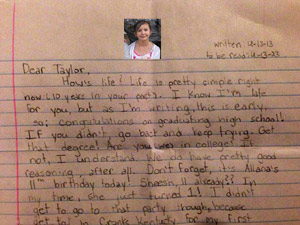 written 4-13-13
to be read: 4-13-23
Dear Taylor,
How's life? Life is pretty simple right
now (10 years in your past). I know I'm late
for you, but as I'm writing, this is early,
so; congratulations on graduating high school!
If you didn't, go back and keep trying. Get
that degree! Are you in college? If
not, I understand. We do have pretty good
reasoning, after all. Don't forget, it's Allana's
11th birthday today! Sheesh, 11 already? In
my time, she just turned 1! I didn't
get to go to that party though, because
for my first